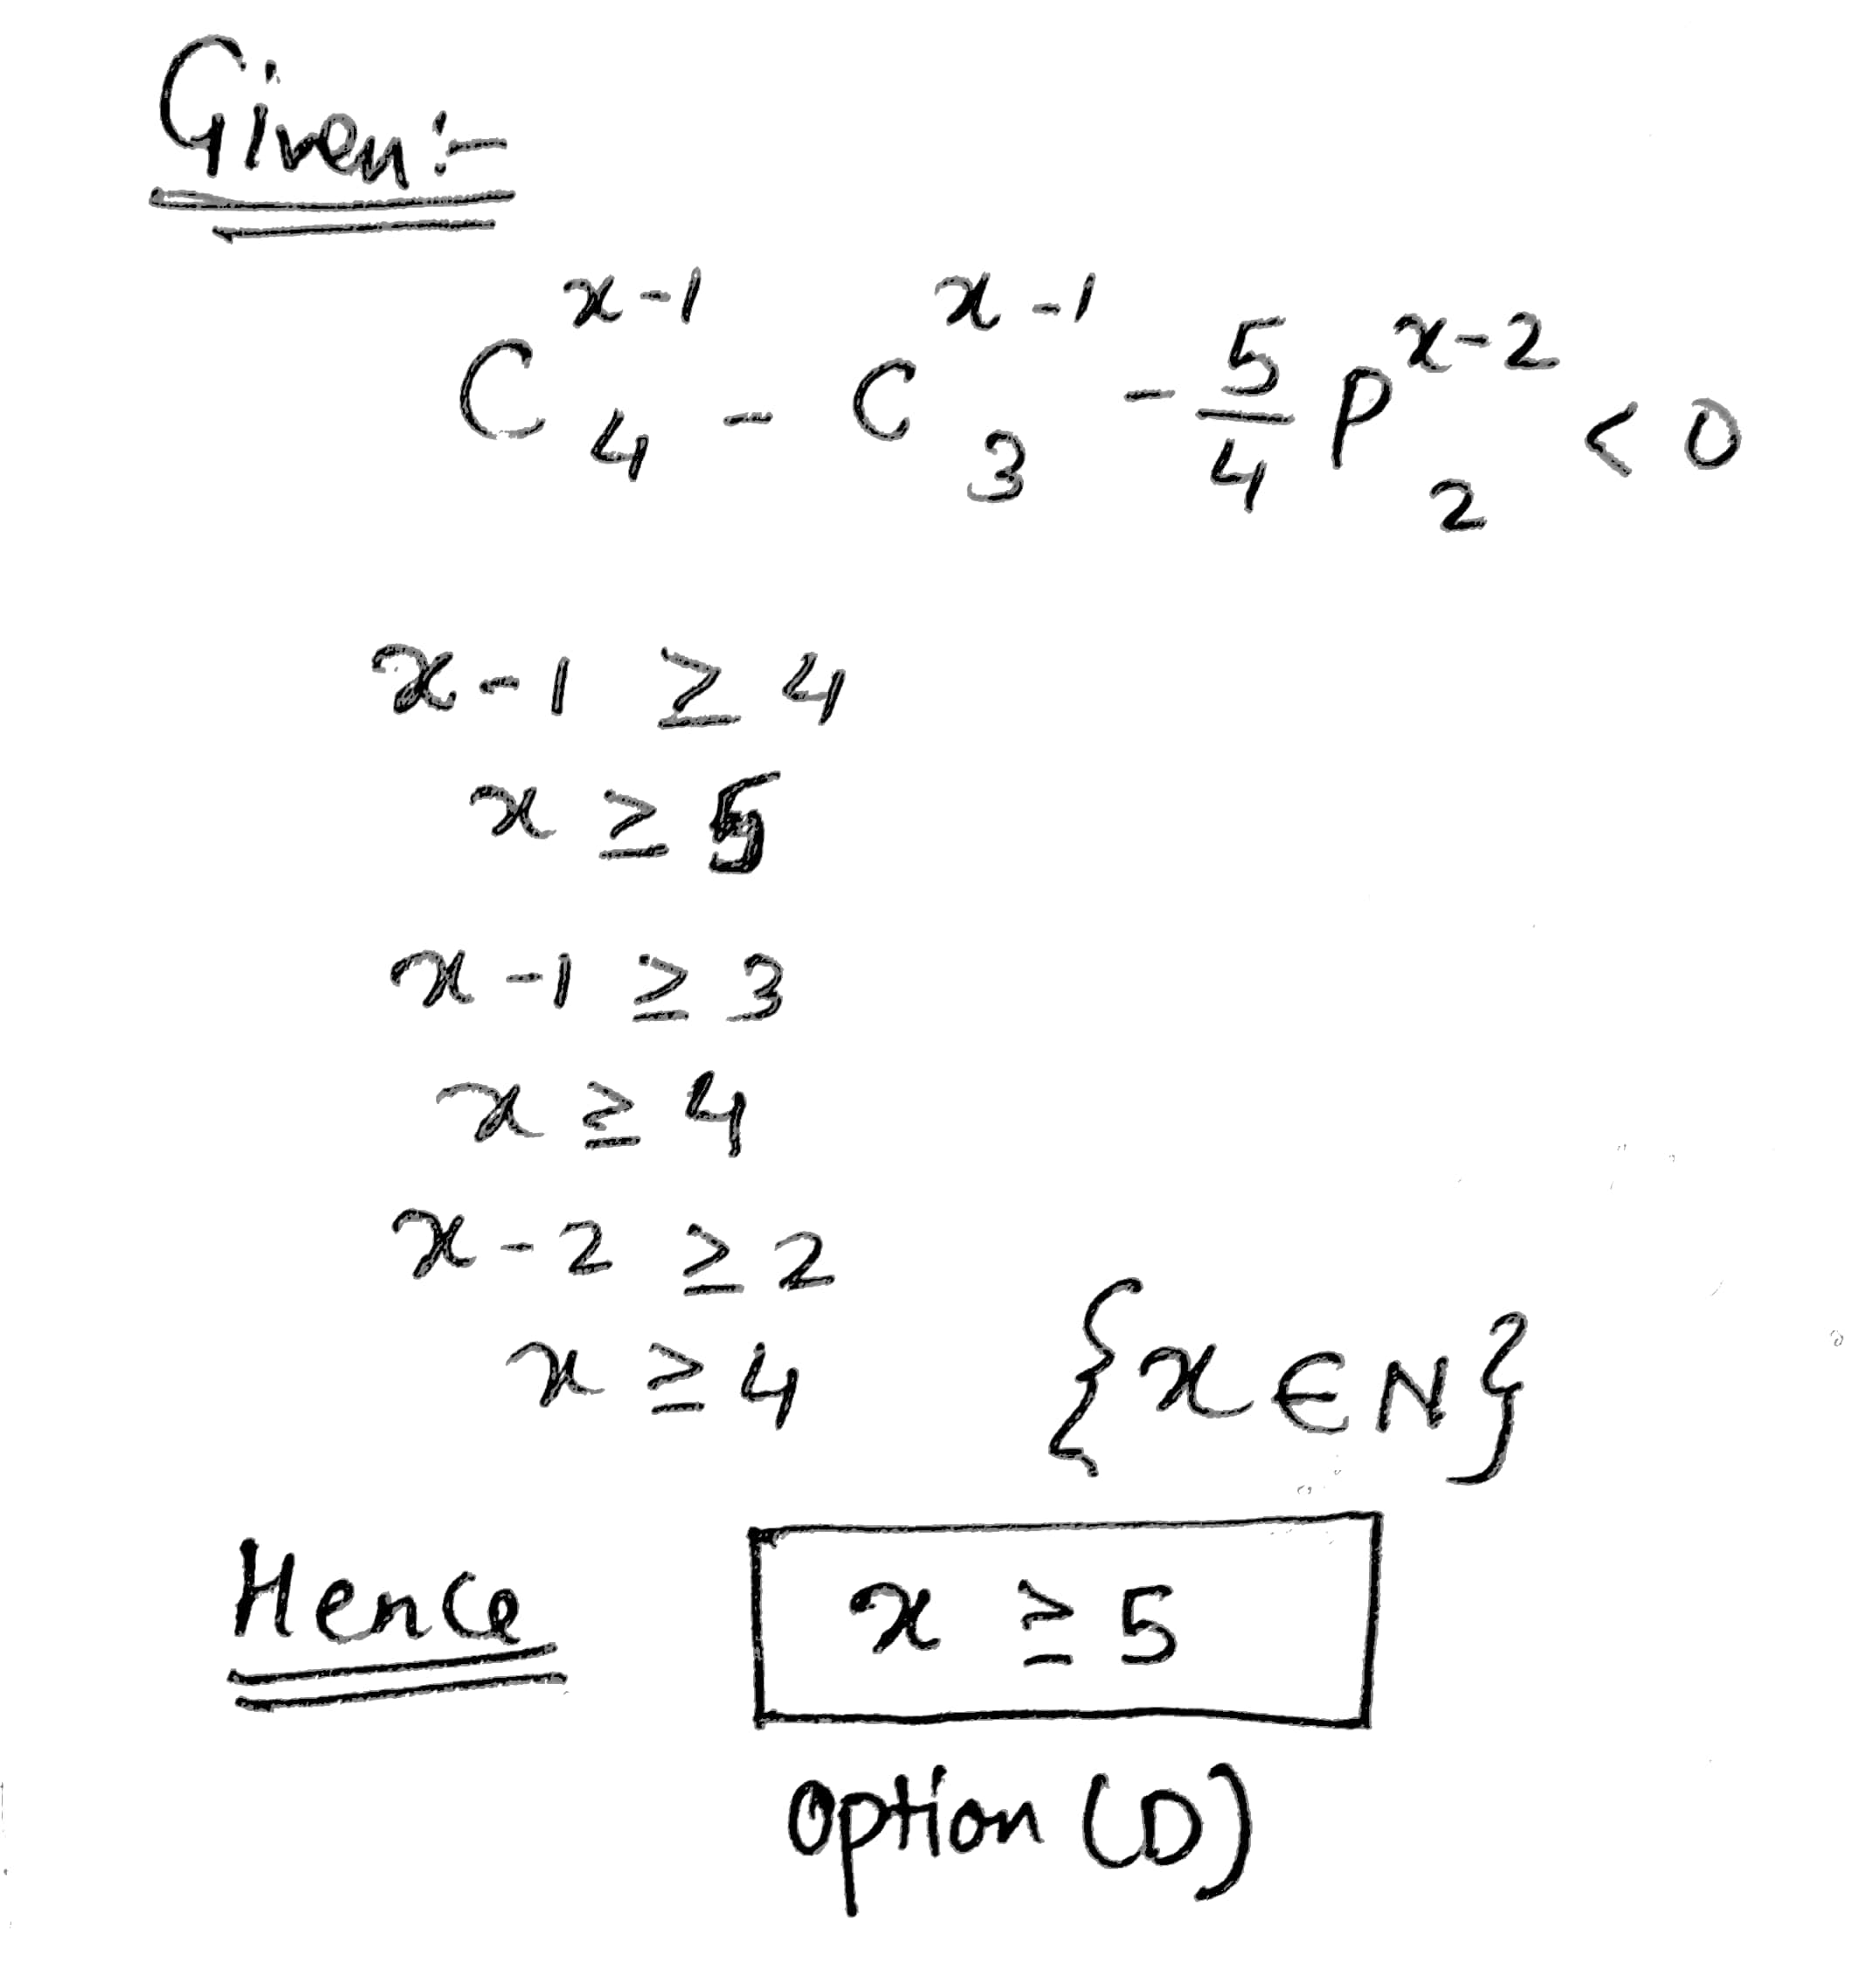 Given:-
C^{x-1}_4 - C^{x-1}_3 - \frac{5}{4} P^{x-2}_2 < 0
x-1 ≥ 4
x ≥ 5
x-1 ≥ 3
x ≥ 4
x-2 ≥ 2
x ≥ 4 {x ∈ N}
Hence x ≥ 5
Option (D)